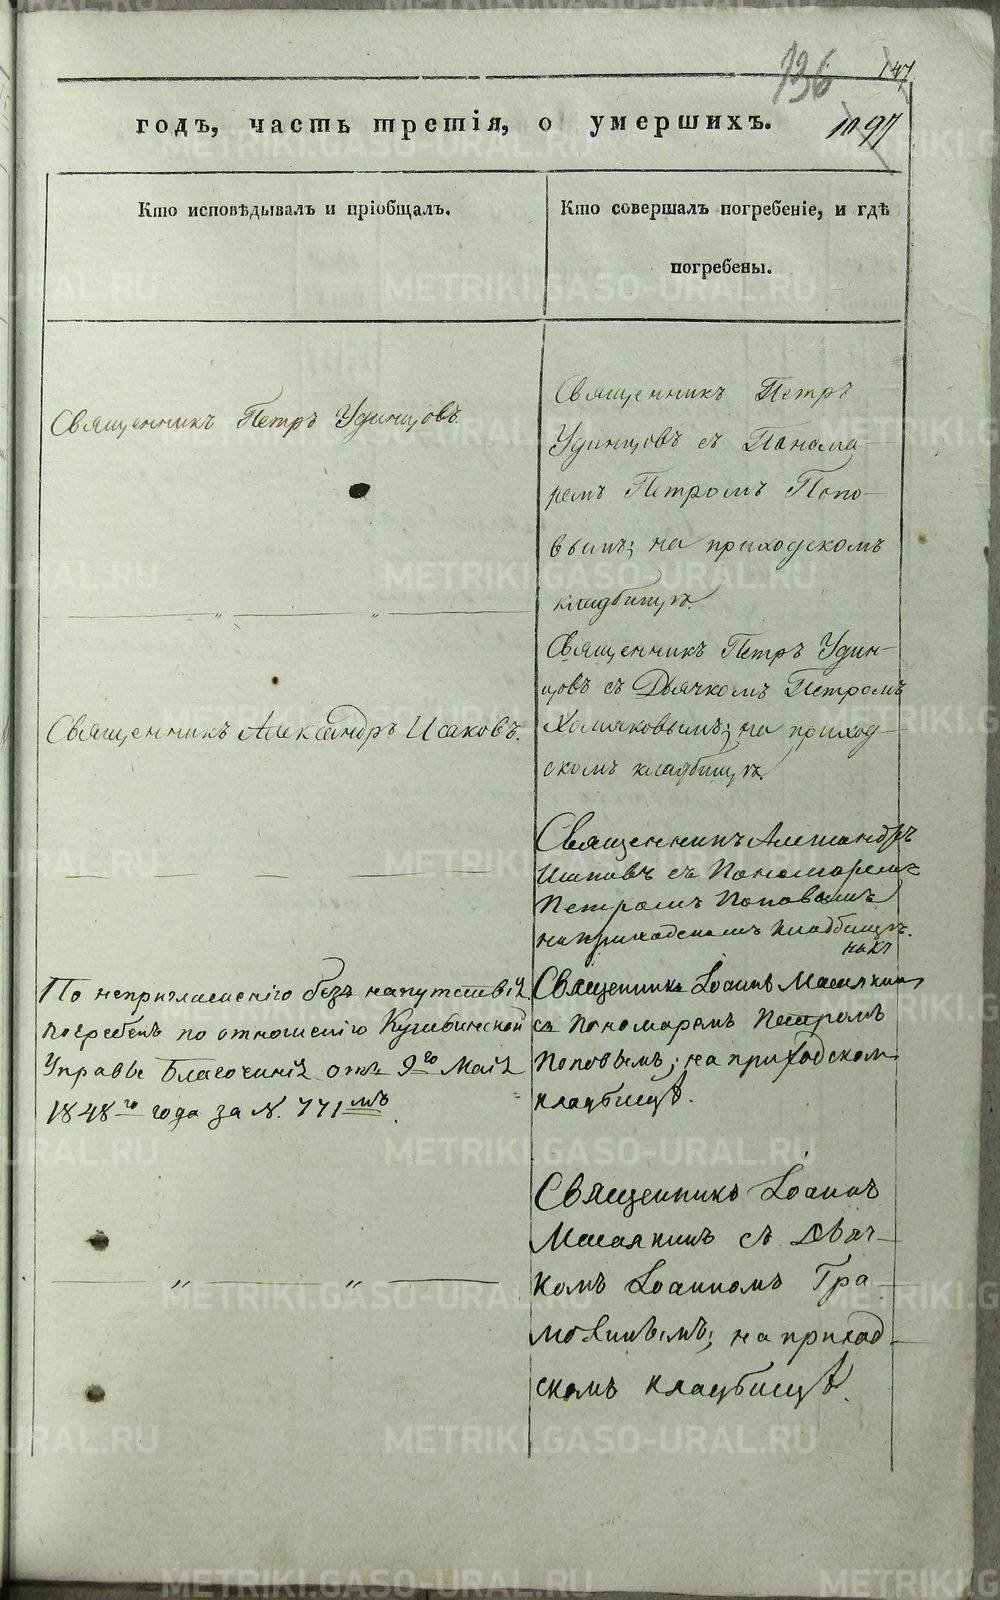 136
147
1097
годъ, часть третія, о умершихъ.
Кто исповѣдывалъ и пріобщалъ.
Кто совершалъ погребеніе, и гдѣ
погребены.
Священникъ Петръ Удинцовъ.
Священникъ Петръ
Удинцовъ съ Панама-
ремъ Петромъ Попо-
вымъ; на приходскомъ
кладбищѣ.
Священникъ Александръ Исаковъ.
Священникъ Петръ Удин-
цовъ съ Дьячкомъ Петромъ
Хомяковымъ; на приход-
скомъ кладбищѣ.
Священникъ Александръ
Исаковъ съ Пономаремъ
Петромъ Поповымъ
на приходскомъ кладбищѣ.
По неприглашенію безъ напутствія
погребенъ по отношенію Кушвинской
Управы Благочинія отъ 9го Маія
1848го года за N. 771мъ
Священникъ Іоаннъ Масялкинъ
съ Пономаремъ Петромъ
Поповымъ; на приходском
кладбищѣ.
Священникъ Іоаннъ
Масялкинъ съ Дьяч-
комъ Іоанномъ Гра-
мотинымъ; на приход-
скомъ кладбищѣ.
METRIKI.GASO-URAL.RU